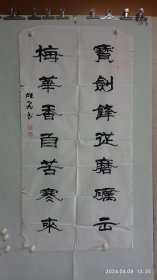 寶劍鋒從磨礪出
梅華香自苦寒來
2024.04.09 13:35